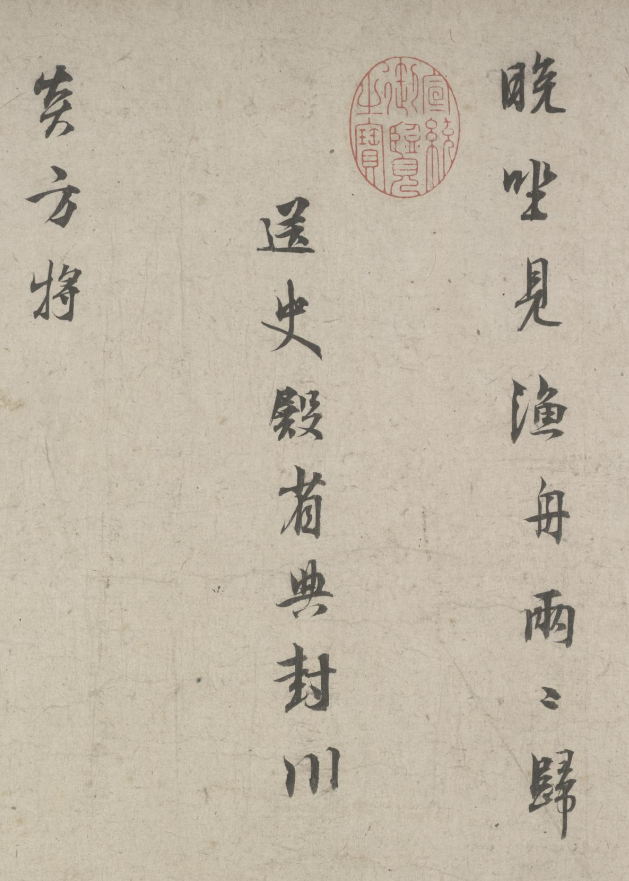 晚坐見漁舟兩〻歸
宣統御覽之寶
送史殿省典封川
炎方將